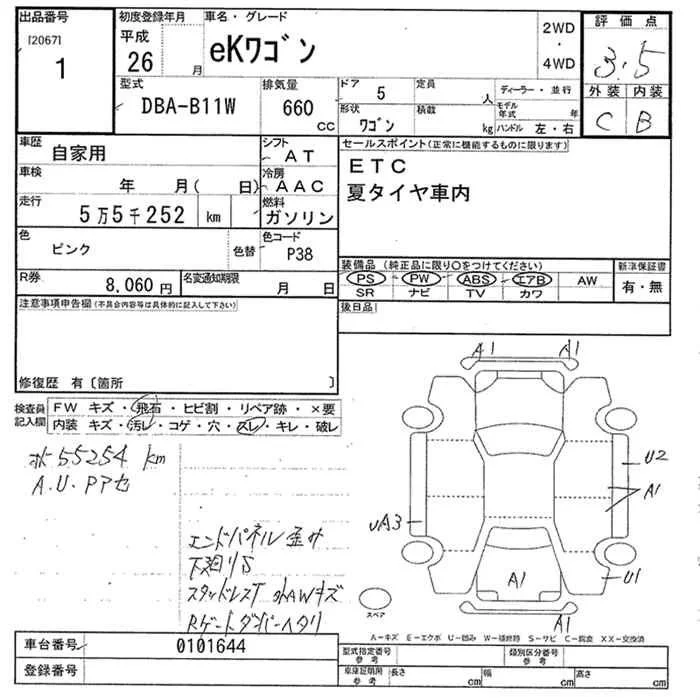 出品番号
[2067]
1
初度登録年月
平成
26
月
車名・グレード
eKワゴン
2WD
・
4WD
評価点
3.5
外装 内装
C B
型式
DBA-B11W
排気量
660
cc
ドア 5
形状 ワゴン
定員
人
積載
kg
ディーラー・並行
モデル年式
年
ハンドル 左・右
車歴
自家用
シフト
AT
車検
年 月( 日)
冷房
AAC
走行
5万5千252 km
燃料
ガソリン
色
ピンク
色替
色コード
P38
R券
8,060円
名変通知期限
月 日
セールスポイント(正常に機能するものに限ります)
ETC
夏タイヤ車内
装備品(純正品に限り○をつけてください)
PS PW ABS エアB AW
SR ナビ TV カワ
新準保証書
有・無
後日品
注意事項申告欄(不具合内容等は具体的に記入して下さい)
修復歴 有〔箇所 〕
検査員記入欄
FW キズ・飛石・ヒビ割・リペア跡・×要
内装 キズ・汚レ・コゲ・穴・スレ・キレ・破レ
55254 km
A.U.PPアセ
エンドパネル歪サ
下廻りS
スタッドレスT
AWキズ
Rゲートダンパーヘタリ
A1 A1
U2
A1
UA3
A1
U1
A1
スペア
A－キズ E－エクボ U－凹み W－補修跡 S－サビ C－腐食 XX－交換済
車台番号
0101644
登録番号
型式指定番号
参考
類別区分番号
参考
車庫証明用
参考
長さ cm
幅 cm
高さ cm